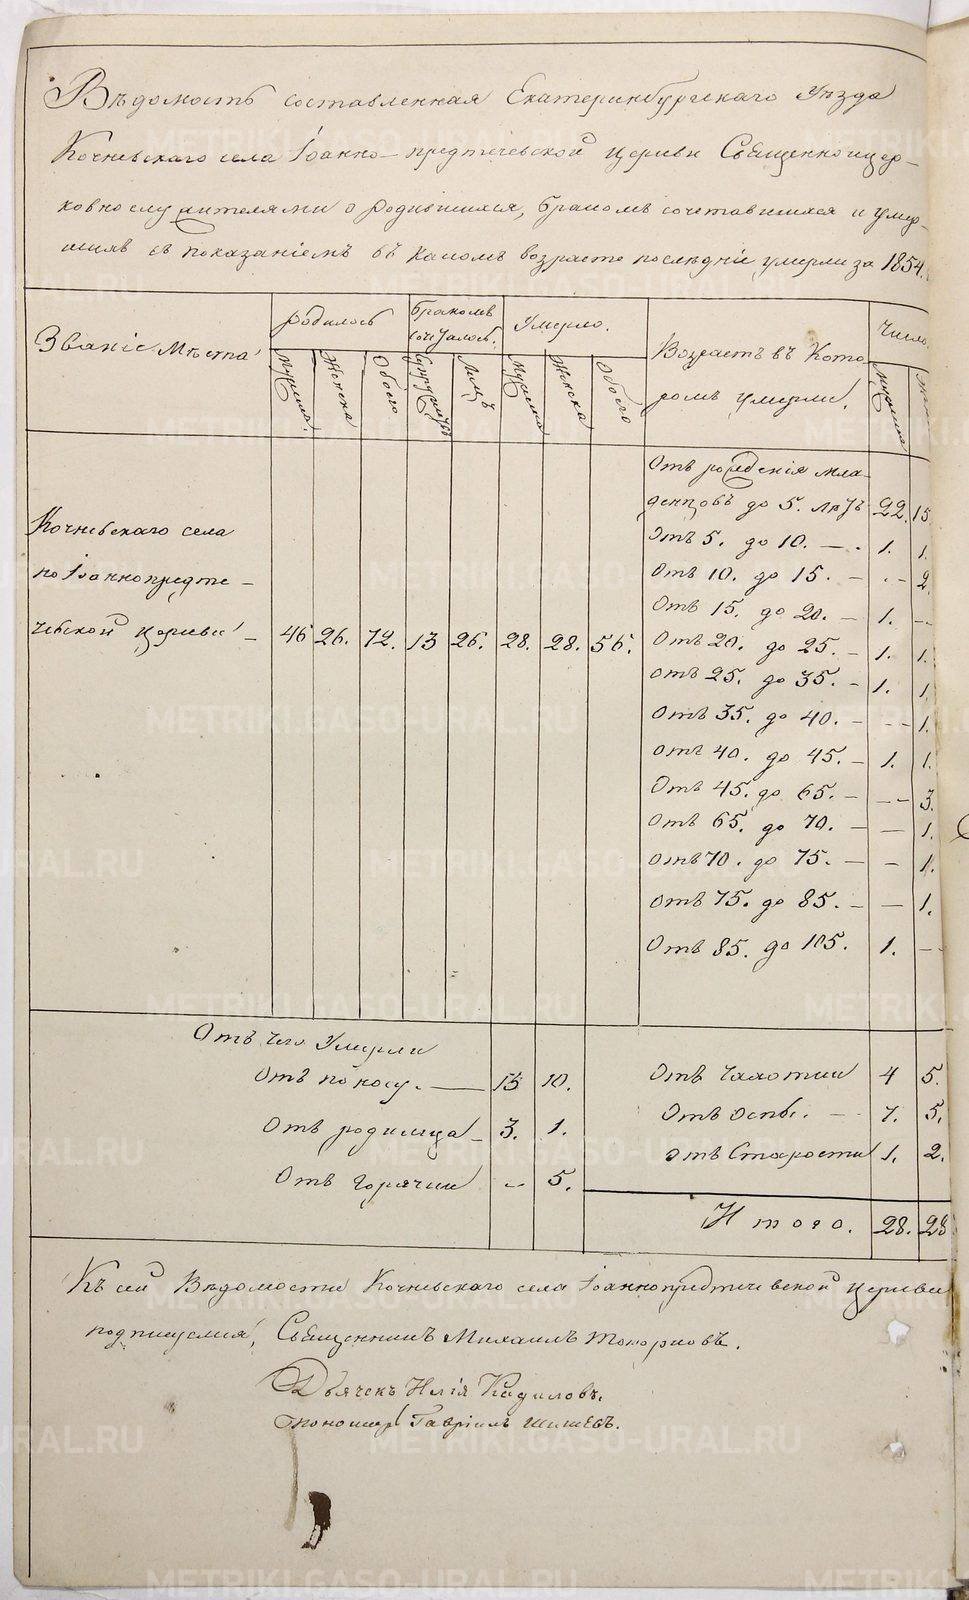 Вѣдомость составленная Екатеринбургскаго Уѣзда
Кочневскаго села Іоанно-предтечевской церкви Священноцер-
ковнослужителями о родившихся, бракомъ сочетавшихся и умер-
шихъ съ показаніемъ въ какомъ возрасте послѣдніе умерли за 1854.
Званіе Мѣста
родилось
Бракомъ сочеталось.
Умерло.
Возрастъ въ кото-
ромъ умерли.
Число
Мужеска
Женска
Обоего
Супружествъ
Лицъ
Мужеска
Женска
Обоего
Мужеска
Кочневскаго села
по Іоаннопредте-
чевской церкви - 46 26. 72. 13 26. 28. 28. 56.
Отъ рожденія мла-
денцовъ до 5. лѣтъ 22. 15
Отъ 5. до 10. - 1. 1.
Отъ 10. до 15. - - 2.
Отъ 15. до 20. - 1. -
Отъ 20. до 25. - 1. 1.
Отъ 25. до 35. - 1. 1.
Отъ 35. до 40. - - 1.
Отъ 40. до 45. - 1. 1.
Отъ 45. до 65. - - 3.
Отъ 65. до 70. - - 1.
Отъ 70. до 75. - - 1.
Отъ 75. до 85. - - 1.
Отъ 85. до 105. 1. -
Отъ чего Умерли
Отъ поносу. - 15 10.
Отъ родимца - 3. 1.
Отъ горячки - 5.
Отъ чахотки 4 5.
Отъ оспы. - 7. 5.
Отъ Старости 1. 2.
Итого. 28. 28
Къ сей Вѣдомости Кочневскаго села Іоаннопредтечевской церкви
подписуемся, Священникъ Михаилъ Топорковъ.
Дьячекъ Илія Кадиловъ.
Пономарь Гавріилъ Шишевъ.
METRIKI.GASO-URAL.RU